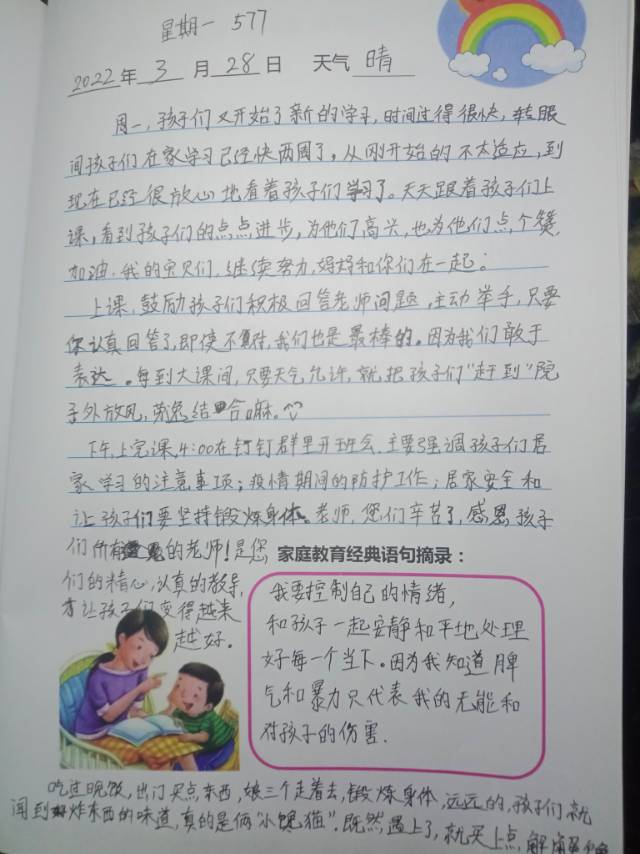 星期一 577
2022年 3 月 28 日 天气 晴
周一,孩子们又开始了新的学习,时间过得很快,转眼
间孩子们在家学习已经快两周了。从刚开始的不太适应,到
现在已经很放心地看着孩子们学习了。天天跟着孩子们上
课,看到孩子们的点点进步,为他们高兴,也为他们点个赞,
加油,我的宝贝们,继续努力,妈妈和你们在一起。
上课,鼓励孩子们积极回答老师问题,主动举手,只要
你认真回答了,即使不对,我们也是最棒的。因为我们敢于
表达。每到大课间,只要天气允许,就把孩子们“赶到”院
子外放风,劳逸结合嘛。
下午上完课,4:00在钉钉群里开班会,主要强调孩子们居
家学习的注意事项;疫情期间的防护工作;居家安全和
让孩子们要坚持锻炼身体。老师,您们辛苦了,感恩孩子
们所有的老师!是您
们的精心,认真的教导,
才让孩子们变得越来
越好。
家庭教育经典语句摘录:
我要控制自己的情绪,
和孩子一起安静和平地处理
好每一个当下。因为我知道脾
气和暴力只代表我的无能和
对孩子的伤害.
吃过晚饭,出门买点东西,娘三个走着去,锻炼身体,远远的,孩子们就
闻到炸东西的味道,真的是俩“小馋猫”。既然遇上了,就买上点,解解馋